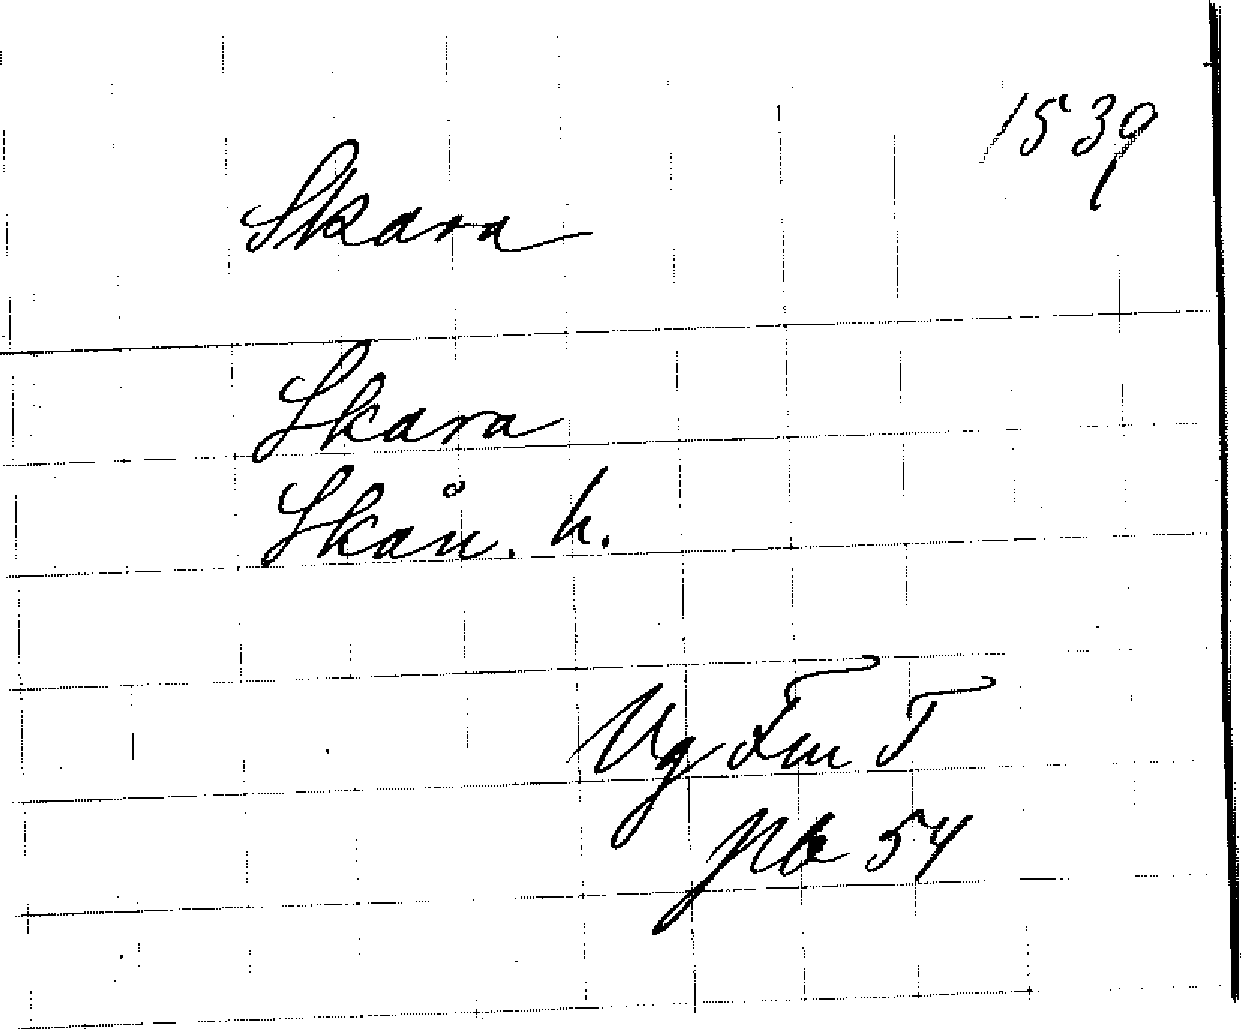 1539
Skara
Skara
Skån. h.
Vg Fm T
54